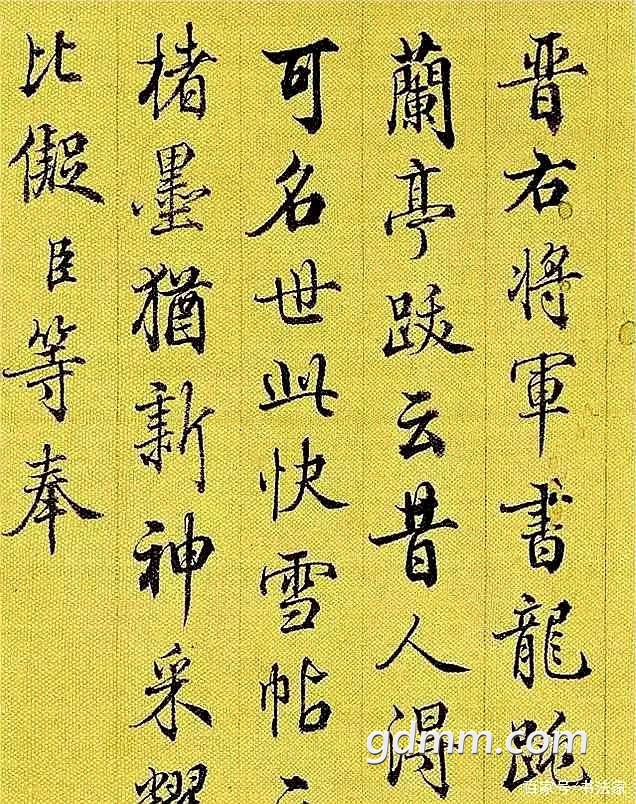 晋右将軍書龍跳
蘭亭跋云昔人得
可名世此快雪帖
楮墨猶新神采耀
比儗臣等奉
gdmm.com
百家号·书法家